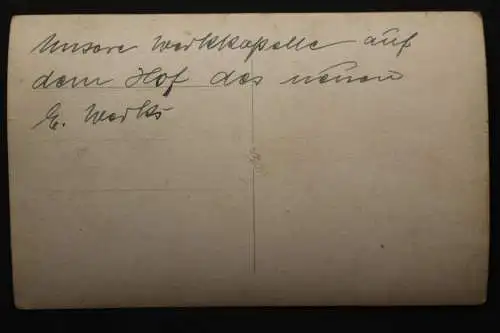 Unsere Werkkapelle auf
dem Hof des neuen
E. Werks